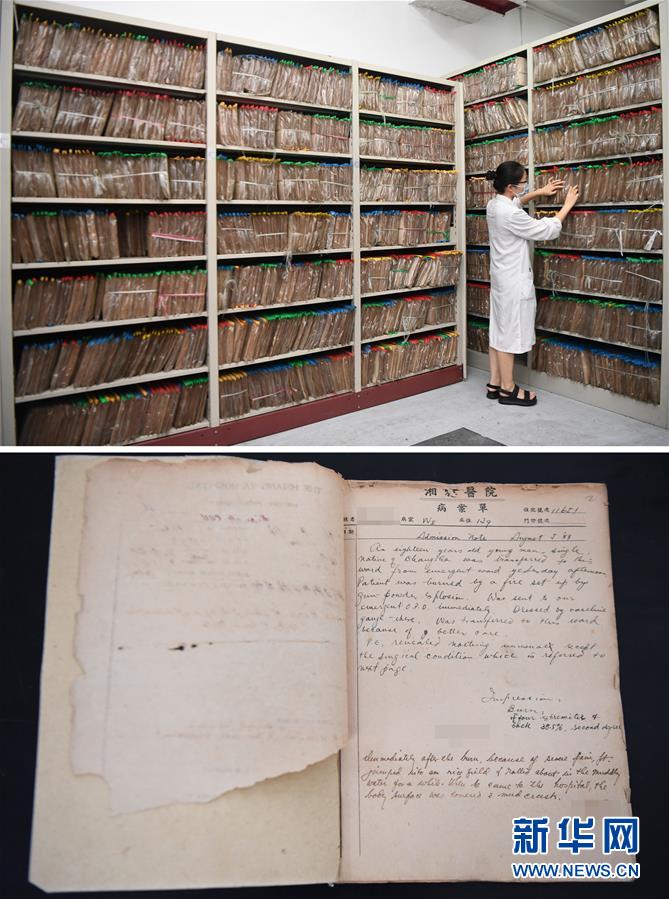 湘雅醫院
病案單
住院號碼 11651
姓名 病室 W8 床位 129 門診號碼
日期
2
Admission Note August 5 '38
An eighteen years old young man, single,
native of Changsha was transferred to this
ward from emergent ward yesterday afternoon
Patient was burned by a fire set up by
gun powder explosion. Was sent to our
emergent O.P.D. immediately Dressed by vaseline
gauze. Was transferred to this ward
because of better care.
P.E. revealed nothing unusual except
the surgical condition which is referred to
next page.
Impression,
Burn,
of four extremities &
back 38.5%, second degree
Immediately after the burn, because of severe pain, pt.
jumped into an rice field & rolled about in the muddy
water for a while. When he came to the hospital, the
body surface was covered mud crusts.
新华网
WWW.NEWS.CN